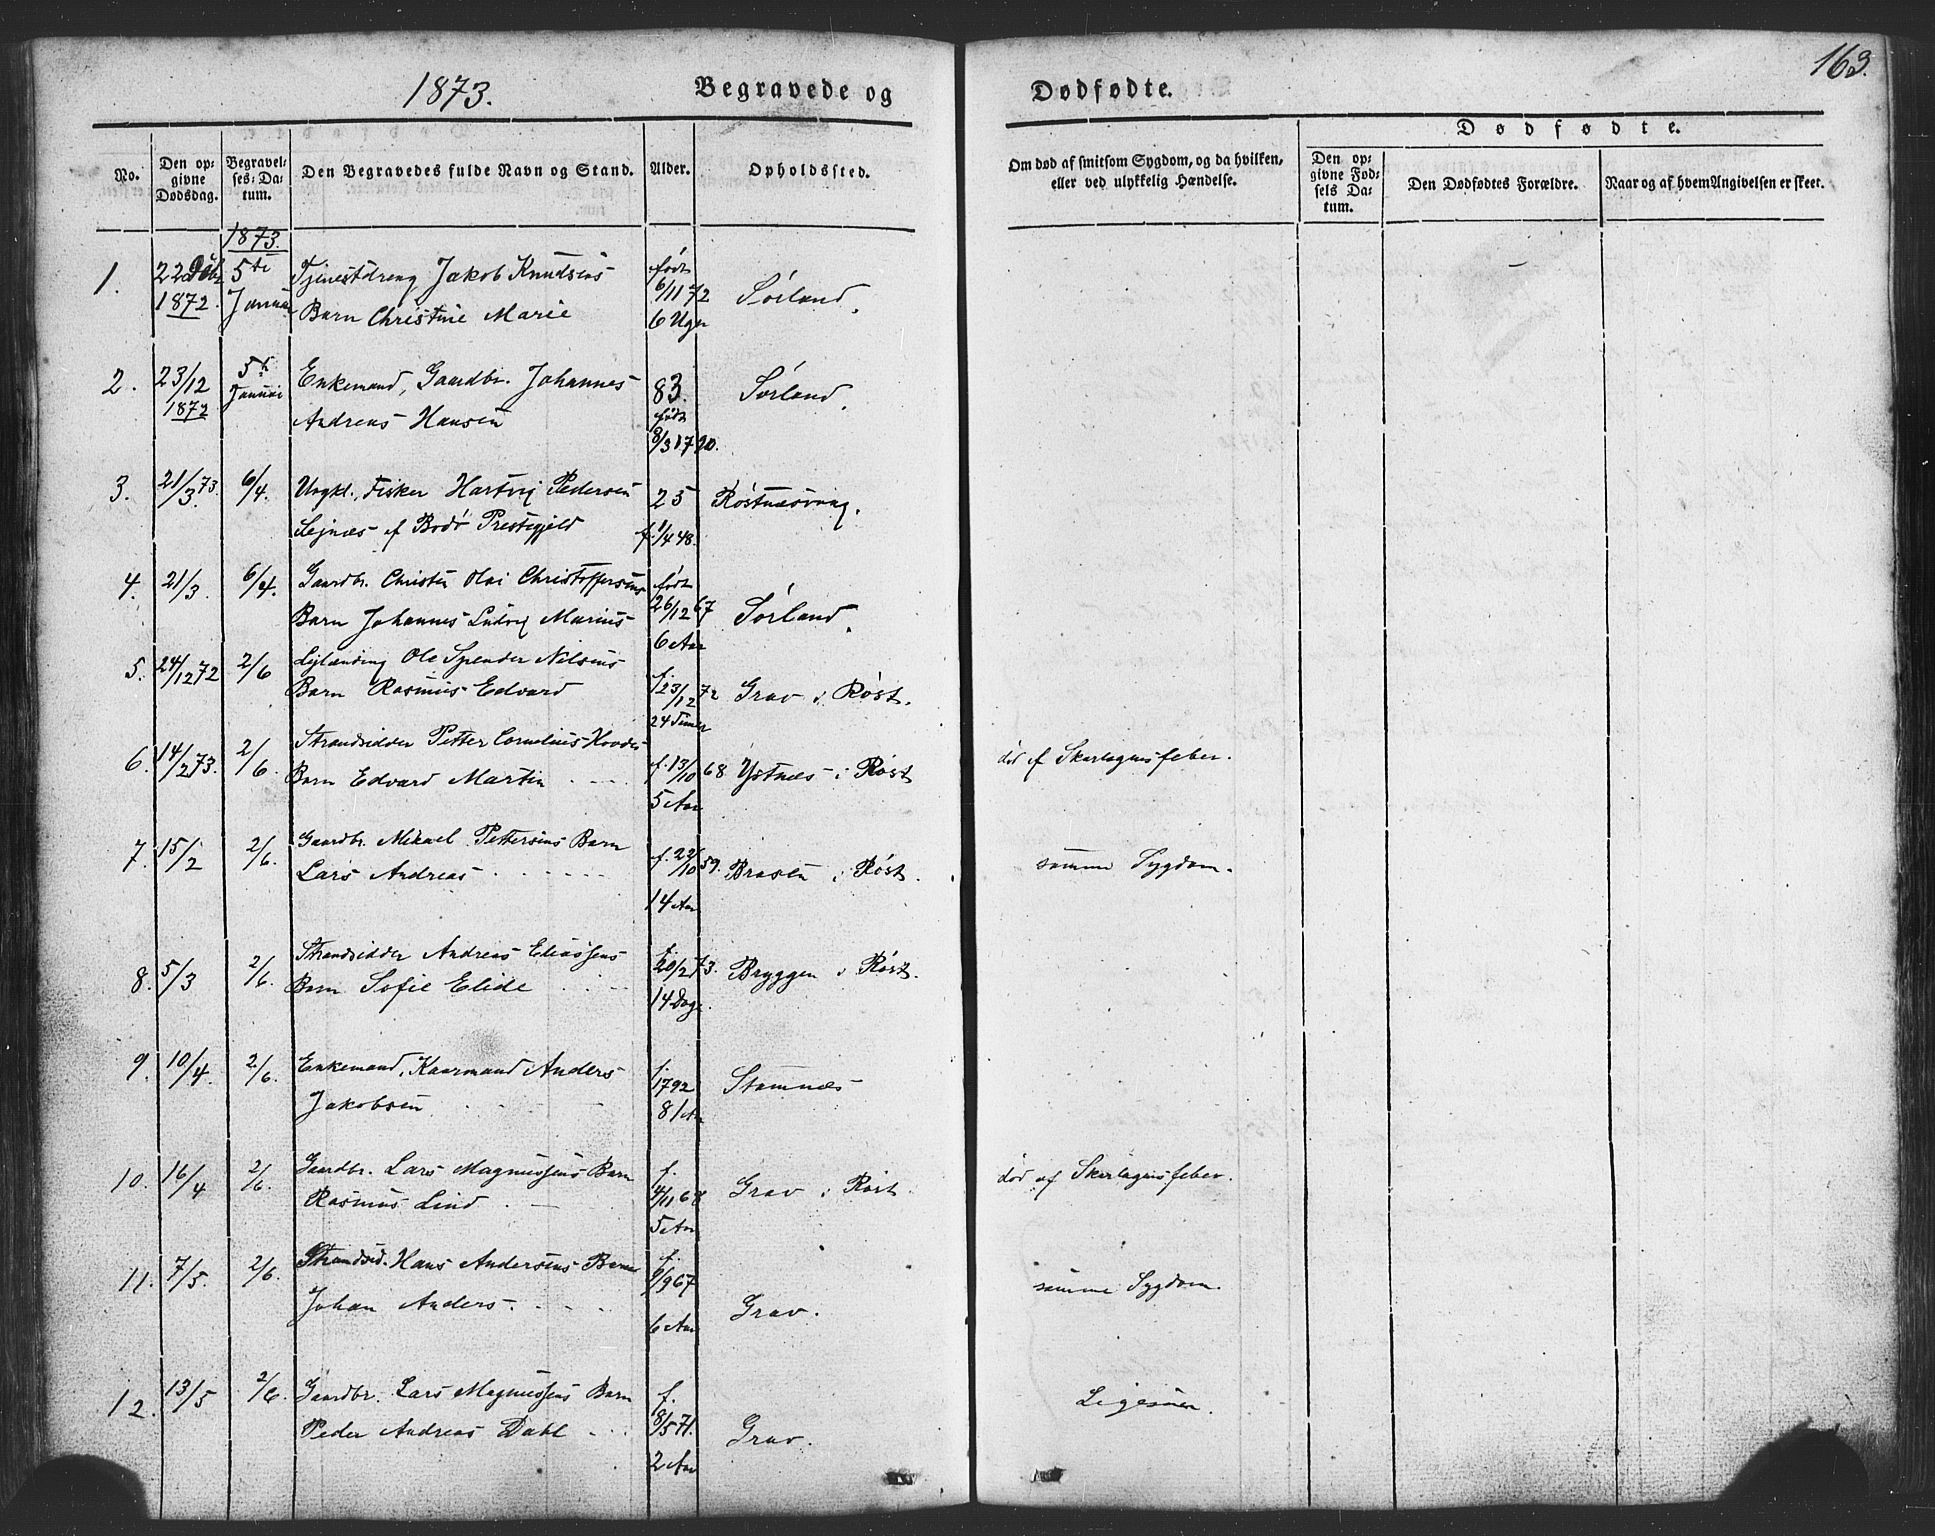 163.
1873. Begravede og Dødfødte.
Dødfødte.
No. Den opgivne Dødsdag. Begravelses-Datum. Den Begravedes fulde Navn og Stand. Alder. Opholdssted. Om død af smitsom Sygdom, og da hvilken, eller ved ulykkelig Hændelse. Den opgivne Fødsels Datum. Den Dødfødtes Forældre. Naar og af hvem Angivelsen er skeet.
1873.
1. 22 Dcbr 1872. 5te Januar Tjenestdreng Jakob Knudsens født 6/11 72
Barn Christine Marie 6 Uger Sørland.
2. 23/12 1872 5t Januar Enkemand, Gaardbr. Johannes 83. Sørland.
Andreas Hansen født 8/3 1790.
3. 21/3 73. 6/4. Ungkl. Fisker Hartvig Pedersen 25 Røstnæsvaag.
Sejnæs af Bodø Prestegjeld f. 1/4 48.
4. 21/3. 6/4. Gaardbr. Christen Olai Christoffersens født 26/12 67
Barn Johannes Ludvig Marius 6 Aar Sørland.
5. 24/12 72 2/6 Lejlænding Ole Spender Nilsens f. 23/12 72
Barn Rasmus Edvard 24 Timer Grav i Røst.
6. 14/2 73. 2/6. Strandsidder Petter Cornelius Hovdes f. 13/10 68 død af Skarlagensfeber.
Barn Edvard Martin 5 Aar Ystnæs i Røst
7. 15/2 2/6. Gaardbr. Mikael Pettersens Barn f. 22/10 59. samme Sygdom.
Lars Andreas 14 Aar Brasen i Røst.
8. 5/3 2/6. Strandsidder Andreas Eliassens f. 20/2 73. Bryggen i Røst.
Barn Sofie Elide 14 Dage
9. 10/4. 2/6. Enkemand, Kaarmand Anders f. 1792 Stamnæs
Jakobsen 81 Aar
10. 16/4 2/6. Gaardbr. Lars Magnussens Barn f. 4/11 68 død af Skarlagensfeber.
Rasmus Lind 5 Aar Grav i Røst.
11. 7/5. 2/6. Strandsid. Hans Andersens Barn f. 9/9 67 samme Sygdom.
Johan Anders. 6 Aar Grav.
12. 13/5 2/6. Gaardbr. Lars Magnussens Barn f. 8/5 71. Ligesaa.
Peder Andreas Dahl 2 Aar Grav.